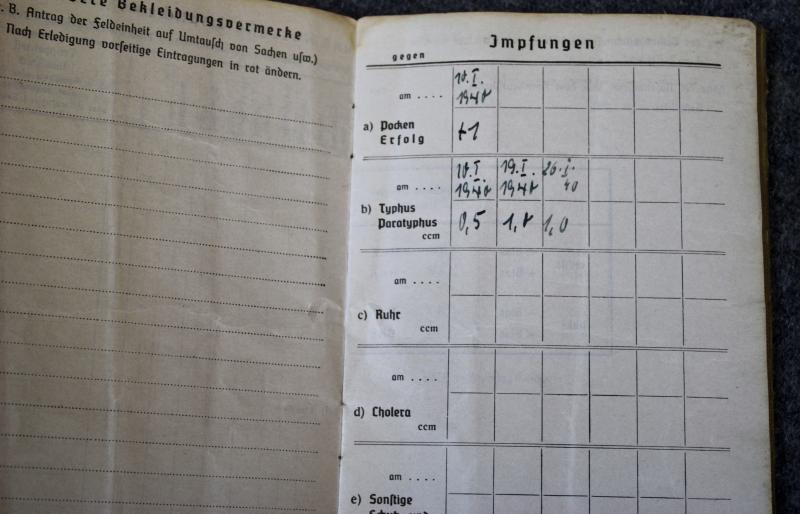 Bekleidungsvermerke
B. Antrag der Feldeinheit auf Umtausch von Sachen usw.)
Nach Erledigung vorseitige Eintragungen in rot ändern.
Impfungen
gegen
am . . . .
a) Pocken
Erfolg
+1
am . . . .
19.I. 26.I.
40
b) Typhus
Paratyphus
ccm
0,5 1,0
am . . . .
c) Ruhr
ccm
am . . . .
d) Cholera
ccm
am . . . .
e) Sonstige